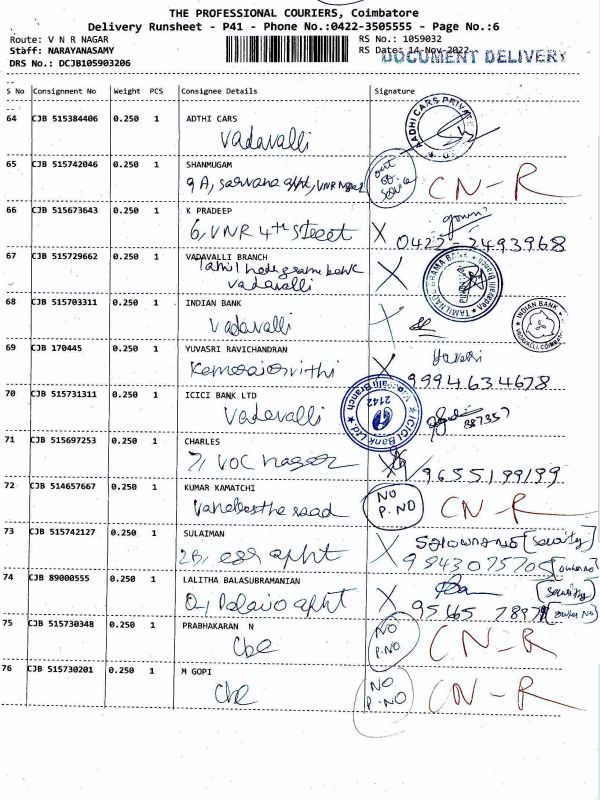 THE PROFESSIONAL COURIERS, Coimbatore
Delivery Runsheet - P41 - Phone No.:0422-3505555 - Page No.:6
Route: V N R NAGAR RS No.: 1059032
Staff: NARAYANASAMY RS Date: 14-Nov-2022
DOCUMENT DELIVERY
DRS No.: DCJB105903206
S No Consignment No Weight PCS Consignee Details Signature
64 CJB 515384406 0.250 1 ADTHI CARS
Vadavalli
AADHI CARS PRIVATE
65 CJB 515742046 0.250 1 SHANMUGAM
9 A, sarvana apht, VNR Nagar
out of CN-R
66 CJB 515673643 0.250 1 K PRADEEP
6, VNR 4th street X 0422-2493968
67 CJB 515729662 0.250 1 VADAVALLI BRANCH
Tamil nadu grama bank X
vadavalli
TAMILNADU GRAMA BANK
68 CJB 515703311 0.250 1 INDIAN BANK
Vadavalli X
INDIAN BANK
VADAVALLI, COIMBATORE
69 CJB 170445 0.250 1 YUVASRI RAVICHANDRAN
X 9994634678
70 CJB 515731311 0.250 1 ICICI BANK LTD
Vadavalli
ICICI Bank Ltd. Vadavalli Branch
2142
887357
71 CJB 515697253 0.250 1 CHARLES
7, VOC nagar 9655199199
72 CJB 514657667 0.250 1 KUMAR KAMATCHI
road
NO P.NO CN-R
73 CJB 515742127 0.250 1 SULAIMAN
2B, apht X [Security]
9843075705 owner no
74 CJB 89000555 1 0.250 1 LALITHA BALASUBRAMANIAN
apht X [Security]
owner no
75 CJB 515730348 0.250 1 PRABHAKARAN N
Cbe
NO P.NO CN-R
76 CJB 515730201 0.250 1 M GOPI
Cbe
NO P.NO CN-R